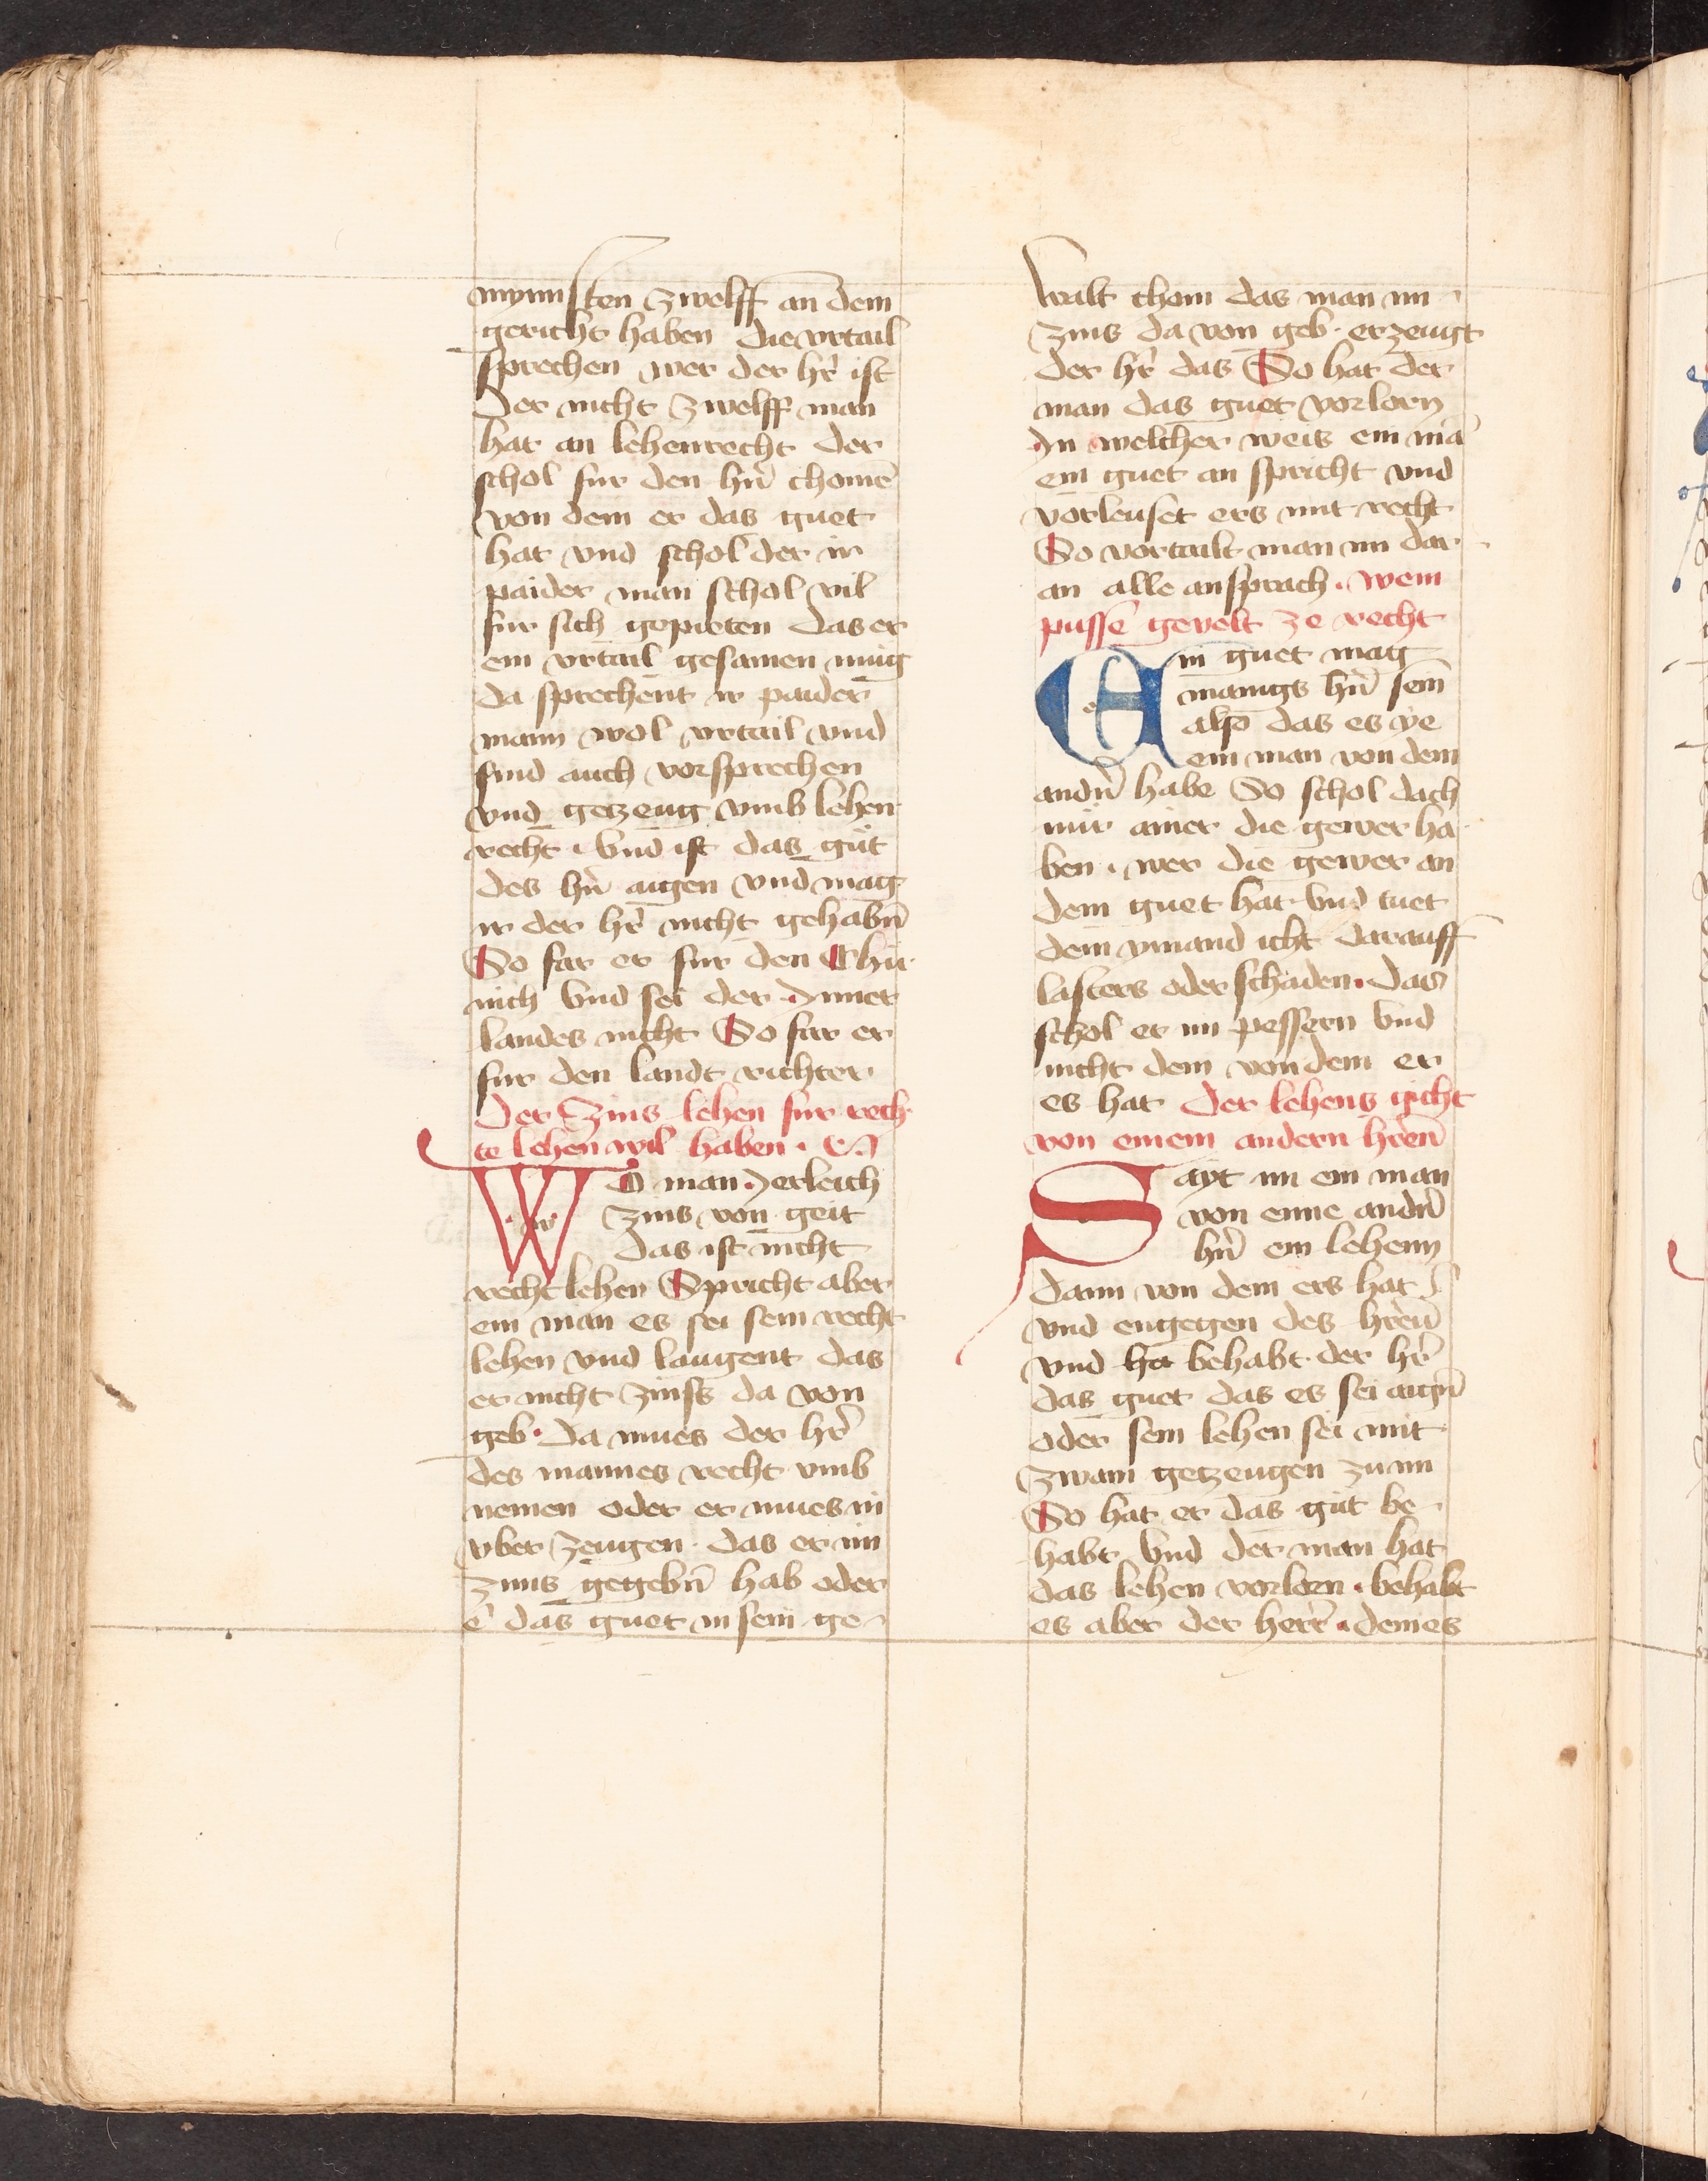 mynnsten zwelff an dem
gericht haben die vrtail
sprechen wer der hr̄ ist
Der nicht zwelff man
hat an lehenrecht der
schol fur den hrn̄ chomē
von dem er das guet
hat vnd schol der ir
paider man schol vil
fur sich gepieten das er
ein vrtail gesamen mug
da sprechent ir paider
mann wol vrtail vnd
sind auch vorsprechen
vnd getzeug vmb lehen
recht . vnd ist das gůt
des hrn̄ aigen vnd mag
ir der hr̄ nicht gehabn̄
So far er fur den Chu
nich vnd sei der Inner
landes nicht So far er
fur den landt richter
Der zins lehen fur rech
te lehen wil haben .
Wo man Ierleich
zins von geit
das ist nicht
recht lehen Spricht aber
ein man es sei sein recht
lehen vnd laugent das
er nicht zinss da von
geb . Da mues der hr̄
des mannes recht vmb
nemen oder er mues in
vber zeugen . das er im
zinns gegebn̄ hab oder
e das guet in sein ge
walt chom das man im
zins da von geb . erzeugt
der hr̄ das So hat der
man das guet vorlorn
In welcher weis ein mā
ein guet an spricht vnd
vorleuset ers mit recht
So vortailt man im dar
an alle ansprach . Wem
pussē gevelt ze recht
Ein guet mag
manigs hrn̄ sein
also das es ye
ein man von dem
andn̄ habe So schol dach
nur ainer die gewer ha
ben . wer die gewer an
dem guet hat vnd tuet
dem ymand icht darauff
lasters oder schaden . das
schol er im pessern vnd
nicht dem von dem er
es hat Der lehens gicht
von einem andern hrēn
Sayt im ein man
von eine andn̄
hrn̄ ein lehenn
dann von dem ers hat
vnd engegen des hrēn
vnd ha behabt der hr̄
das guet das es sei aign̄
oder sein lehen sei mit
zwain getzeugen zu im
So hat er das gut be
habt vnd der man hat
das lehen vorlorn . behabt
es aber der herr . dem es